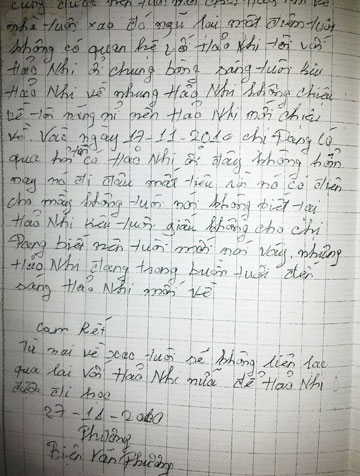 nhà tuôi xao đó ngủ lai một đêm tuôi
không có quan hệ với Hảo Nhi tôi với
Hảo Nhi ở chung bông sang tuôi kiu
Hảo Nhi về nhưng Hảo Nhi không chiệu
về tôi năng nỉ nên Hảo Nhi mới chiệu
về Vaò ngay 17-11-2010 chị Đang có
qua hỏi có Hảo Nhi ở đây không hôn
may nó đi đâu mất tiêu rồi nó có điện
cho mày không tuôi nói không biết tại
Hảo Nhi kêu tuôi giấu không cho chị
Đang biết nên tuôi mới nói vậy, nhưng
Hảo Nhi đang trong buồn tuôi đến
sang Hảo Nhi mới về
Cam Kết
Từ nai về xao tuôi sẻ không liên lac
qua lai với Hảo Nhi nữa để Hảo Nhi
đi hoc
27-11-2010
Phương
Biện Văn Phương